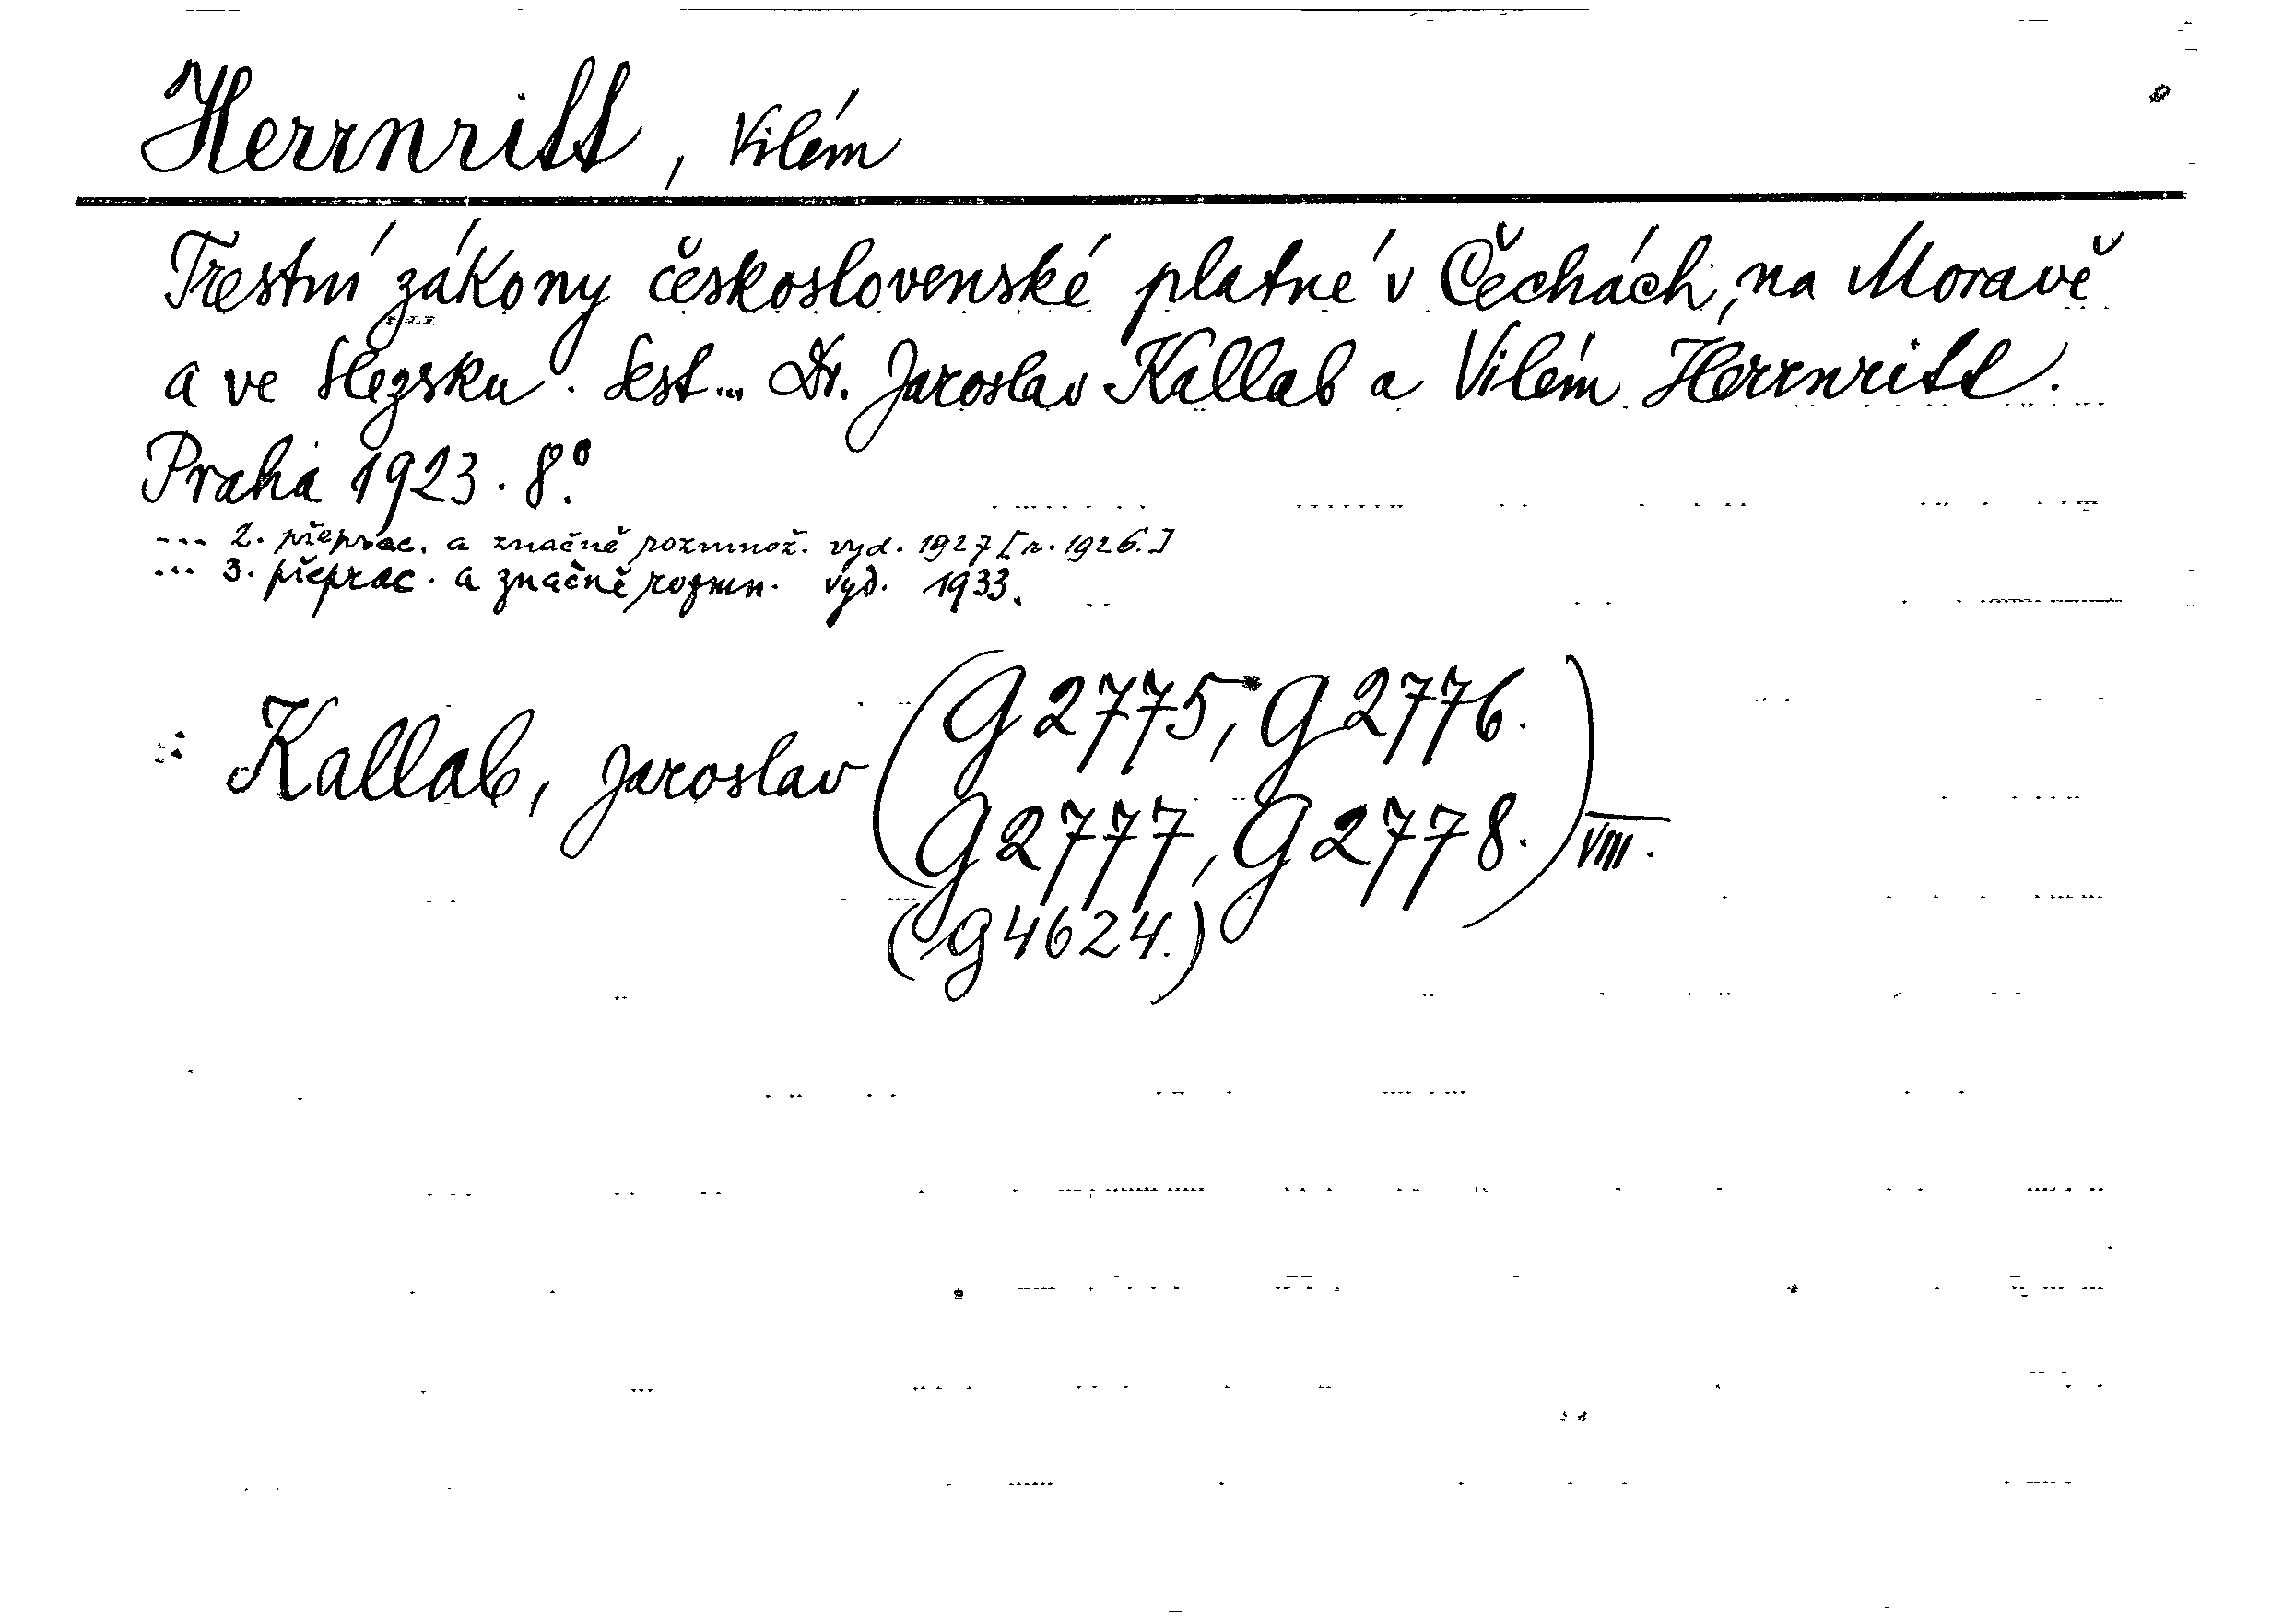 Herrnritt, Vilém
Trestní zákony československé platné v Čechách, na Moravě
a ve Slezsku. Sest... Dr. Jaroslav Kallab a Vilém Herrnritt.
Praha 1923. 8°.
... 2. přeprac. a značně rozmnož. vyd. 1927 [r. 1926.]
... 3. přeprac. a značně rozmn. vyd. 1933.
Kallab, Jaroslav (G 2775, G 2776.
G 2777, G 2778.) VIII.
(G 4624.)